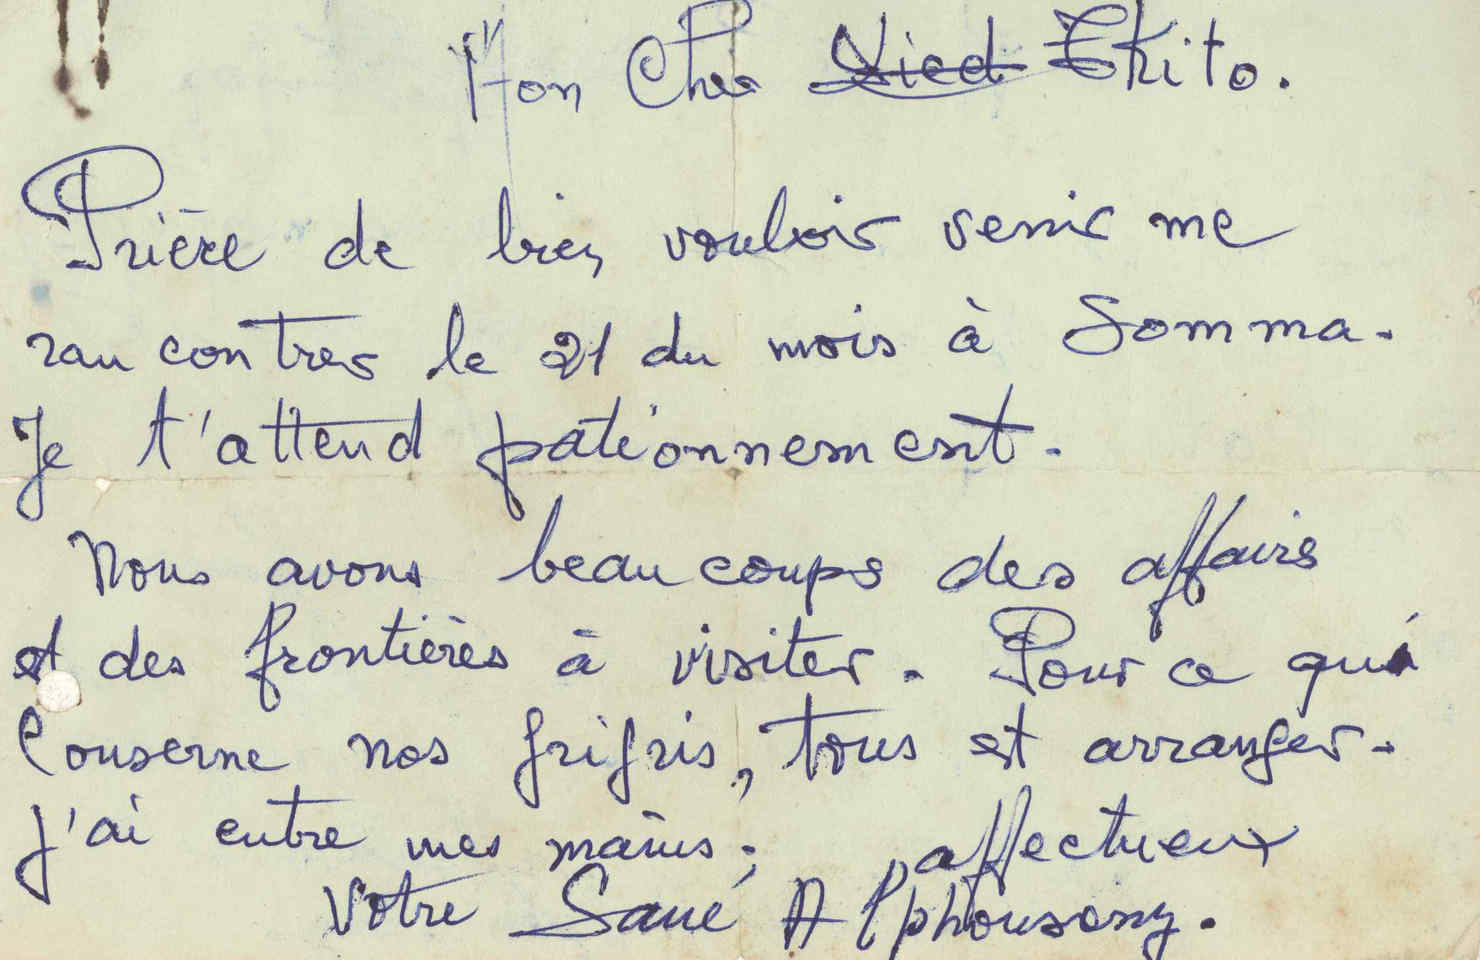 Mon Cher Ekito.
Prière de bien vouloir venir me
rancontrer le 21 du mois à Somma.
Je t'attend pationnement.
Nous avons beaucoups des affairs
et des frontières à visiter. Pour ce qui
Conserne nos frifris, tous est arranger.
J'ai entre mes mains; affectueux
Votre Sané Alphousony.